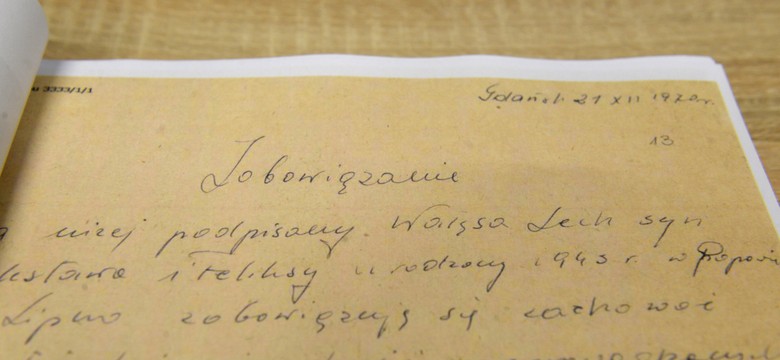 3333/1/1
Gdańsk 21 XII 1970 r.
13
Zobowiązanie
niżej podpisany Wałęsa Lech syn
i Feliksy urodzony 1943 r. w Popowie
Lipno zobowiązuję się zachować